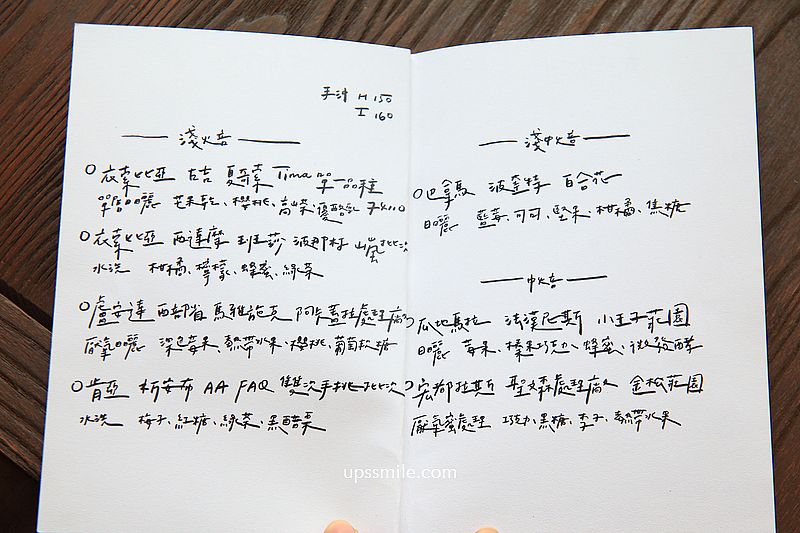 手沖 H 150
I 160
淺火音
衣索比亞 古吉 夏奇索 Tima 單一品種
日曬 芒果乾、櫻桃、高山茶、優酪乳
衣索比亞 西達摩 班莎 批次
水洗 柑橘、檸檬、蜂蜜、綠茶
盧安達 西部省 馬雅施克 阿卡蓋拉處理廠
厭氧日曬 深色莓果、熱帶水果、櫻桃、葡萄軟糖
肯亞 祈安布 AA FAQ 雙次手挑批次
水洗 梅子、紅糖、綠茶、黑醋栗
淺中火音
巴拿馬 波奎特 百合花
日曬 藍莓、可可、堅果、柑橘、焦糖
中火音
瓜地馬拉 法漢尼斯 小王子莊園
日曬 莓果、榛果巧克力、蜂蜜、微發酵
宏都拉斯 聖文森處理廠 金松莊園
厭氧蜜處理 巧克力、黑糖、李子、熱帶水果
upssmile.com